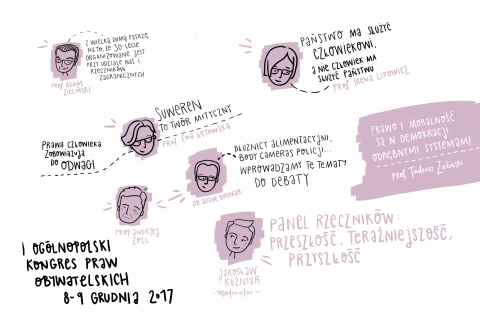 Z WIELKĄ DUMĄ PATRZĘ
NA TO, ŻE 30-LECIE
ORGANIZOWANE JEST
PRZY UDZIALE NAS I
RZECZNIKÓW
ZAGRANICZNYCH
PROF. ADAM
ZIELIŃSKI
PAŃSTWO MA SŁUŻYĆ
CZŁOWIEKOWI,
A NIE CZŁOWIEK MA
SŁUŻYĆ PAŃSTWU
PROF. IRENA LIPOWICZ
SUWEREN
TO TWÓR MITYCZNY
PROF. EWA ŁĘTOWSKA
PRAWA CZŁOWIEKA
ZOBOWIĄZUJĄ
DO ODWAGI
PROF. ANDRZEJ
ZOLL
DŁUŻNICY ALIMENTACYJNI,
BODY CAMERAS POLICJI...
WPROWADZAMY TE TEMATY
DO DEBATY
DR ADAM BODNAR
PRAWO I MORALNOŚĆ
SĄ W DEMOKRACJI
ODRĘBNYMI SYSTEMAMI
PROF. TADEUSZ ZIELIŃSKI
PANEL RZECZNIKÓW:
PRZESZŁOŚĆ, TERAŹNIEJSZOŚĆ,
PRZYSZŁOŚĆ
JAROSŁAW
KUŹNIAR
- moderator -
I OGÓLNOPOLSKI
KONGRES PRAW
OBYWATELSKICH
8-9 GRUDNIA 2017